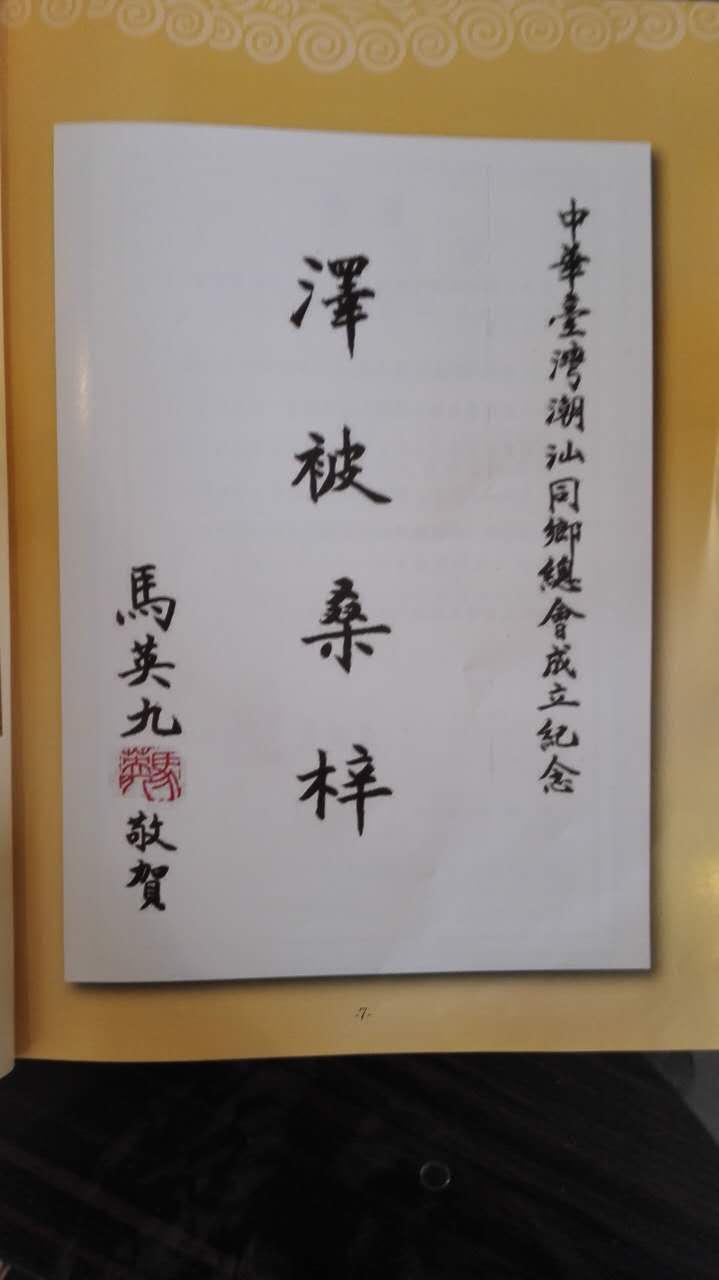 中華臺灣潮汕同鄉總會成立紀念
澤被桑梓
馬英九
敬賀
-7-